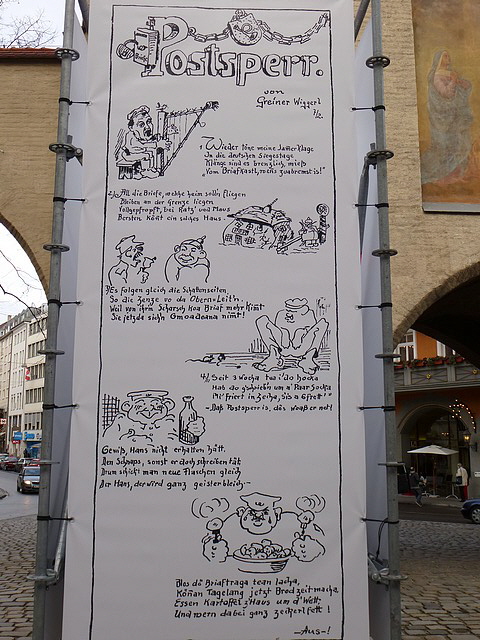 Postsperr.
von
Greiner Wiggerl
1, Wieder töne meine Jammerklage
In die deutschen Siegestage
Klänge sind es brenzlich, mieß
"Vom Briafkastl, wo's zuabremst is!"
2, All die Briefe, welche heim soll'n fliegen
Bleiben an der Grenze liegen
Vollgepfropft, bei Katz' und Maus
Bersten, könnt ein solches Haus.
3, Es folgen gleich die Schattenseiten,
So die Zenze vo da Obern=Leit'n
Weil von ihrm Schorsch koa Briaf mehr kimt
Sie jetzt sich'n nimt!
4, Seit 3 Wocha tua i do hocka
Hab do g'schrieb'n um a Paar Socka
Mi friert in Zecha, 's is a G'frett
- Daß Postsperr is, dös woaß er net!
Gewiß, Hans nicht erhalten hätt.
Den Schnaps, sonst er doch schreiben tät
Drum schickt man neue Flaschen gleich
Der Hans, der wird ganz geisterbleich -
Blos dö Briaftraga tean lacha,
Könan Tagelang jetzt Brodzeit macha
Essen Kartoffel z'Haus um d'Wett
Und wern dabei ganz zeckerlfett!
- Aus -!